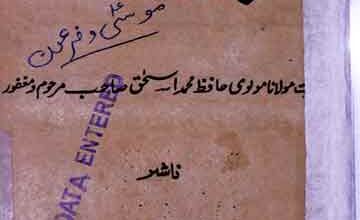 موسیٰ و فرعون
ت مولانا مولوی حافظ محمد اسحٰق صاحب مرحوم و مغفور
DATA ENTERED
ناشر